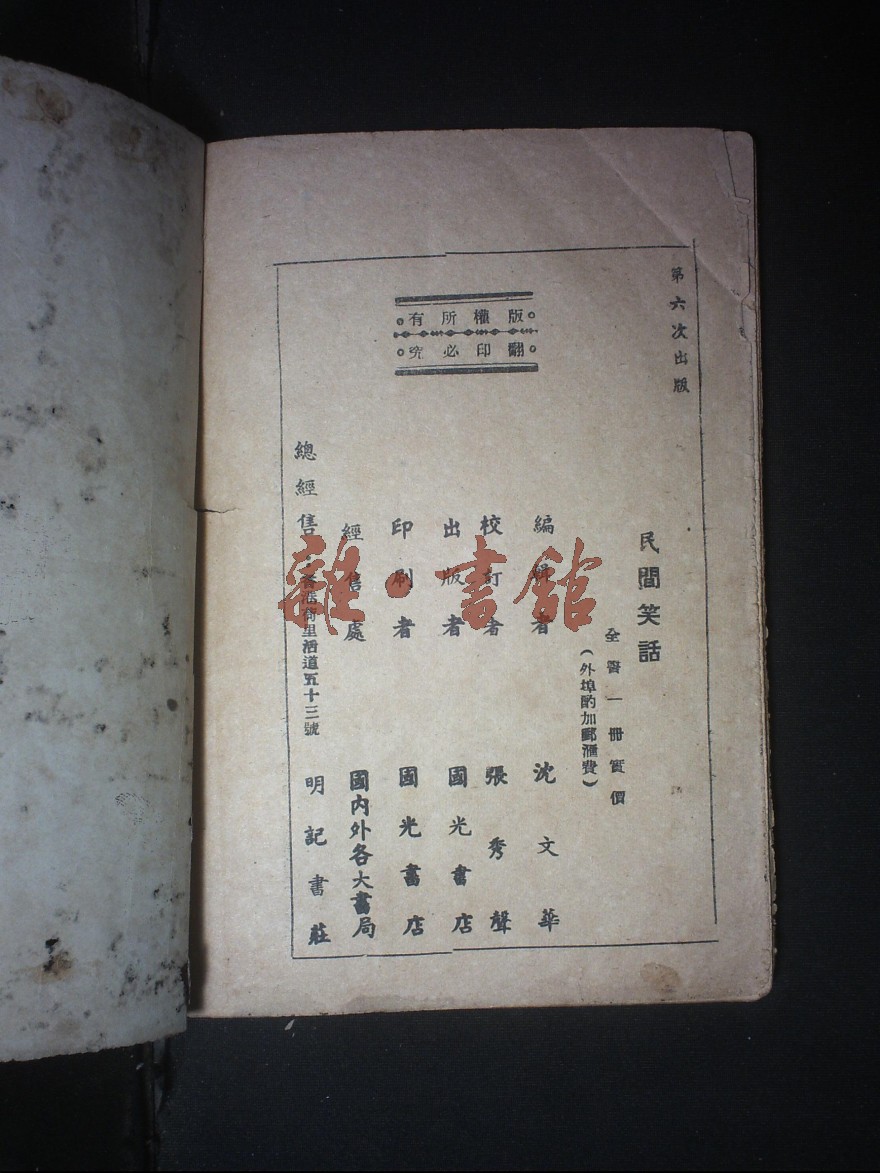 第六次出版
版權所有
翻印必究
民間笑話
全書一冊實價
(外埠酌加郵滙費)
編輯者 沈文華
校訂者 張秀聲
出版者 國光書店
印刷者 國光書店
經售處 國內外各大書局
總經售 香港荷里活道五十三號 明記書莊
雜·書館